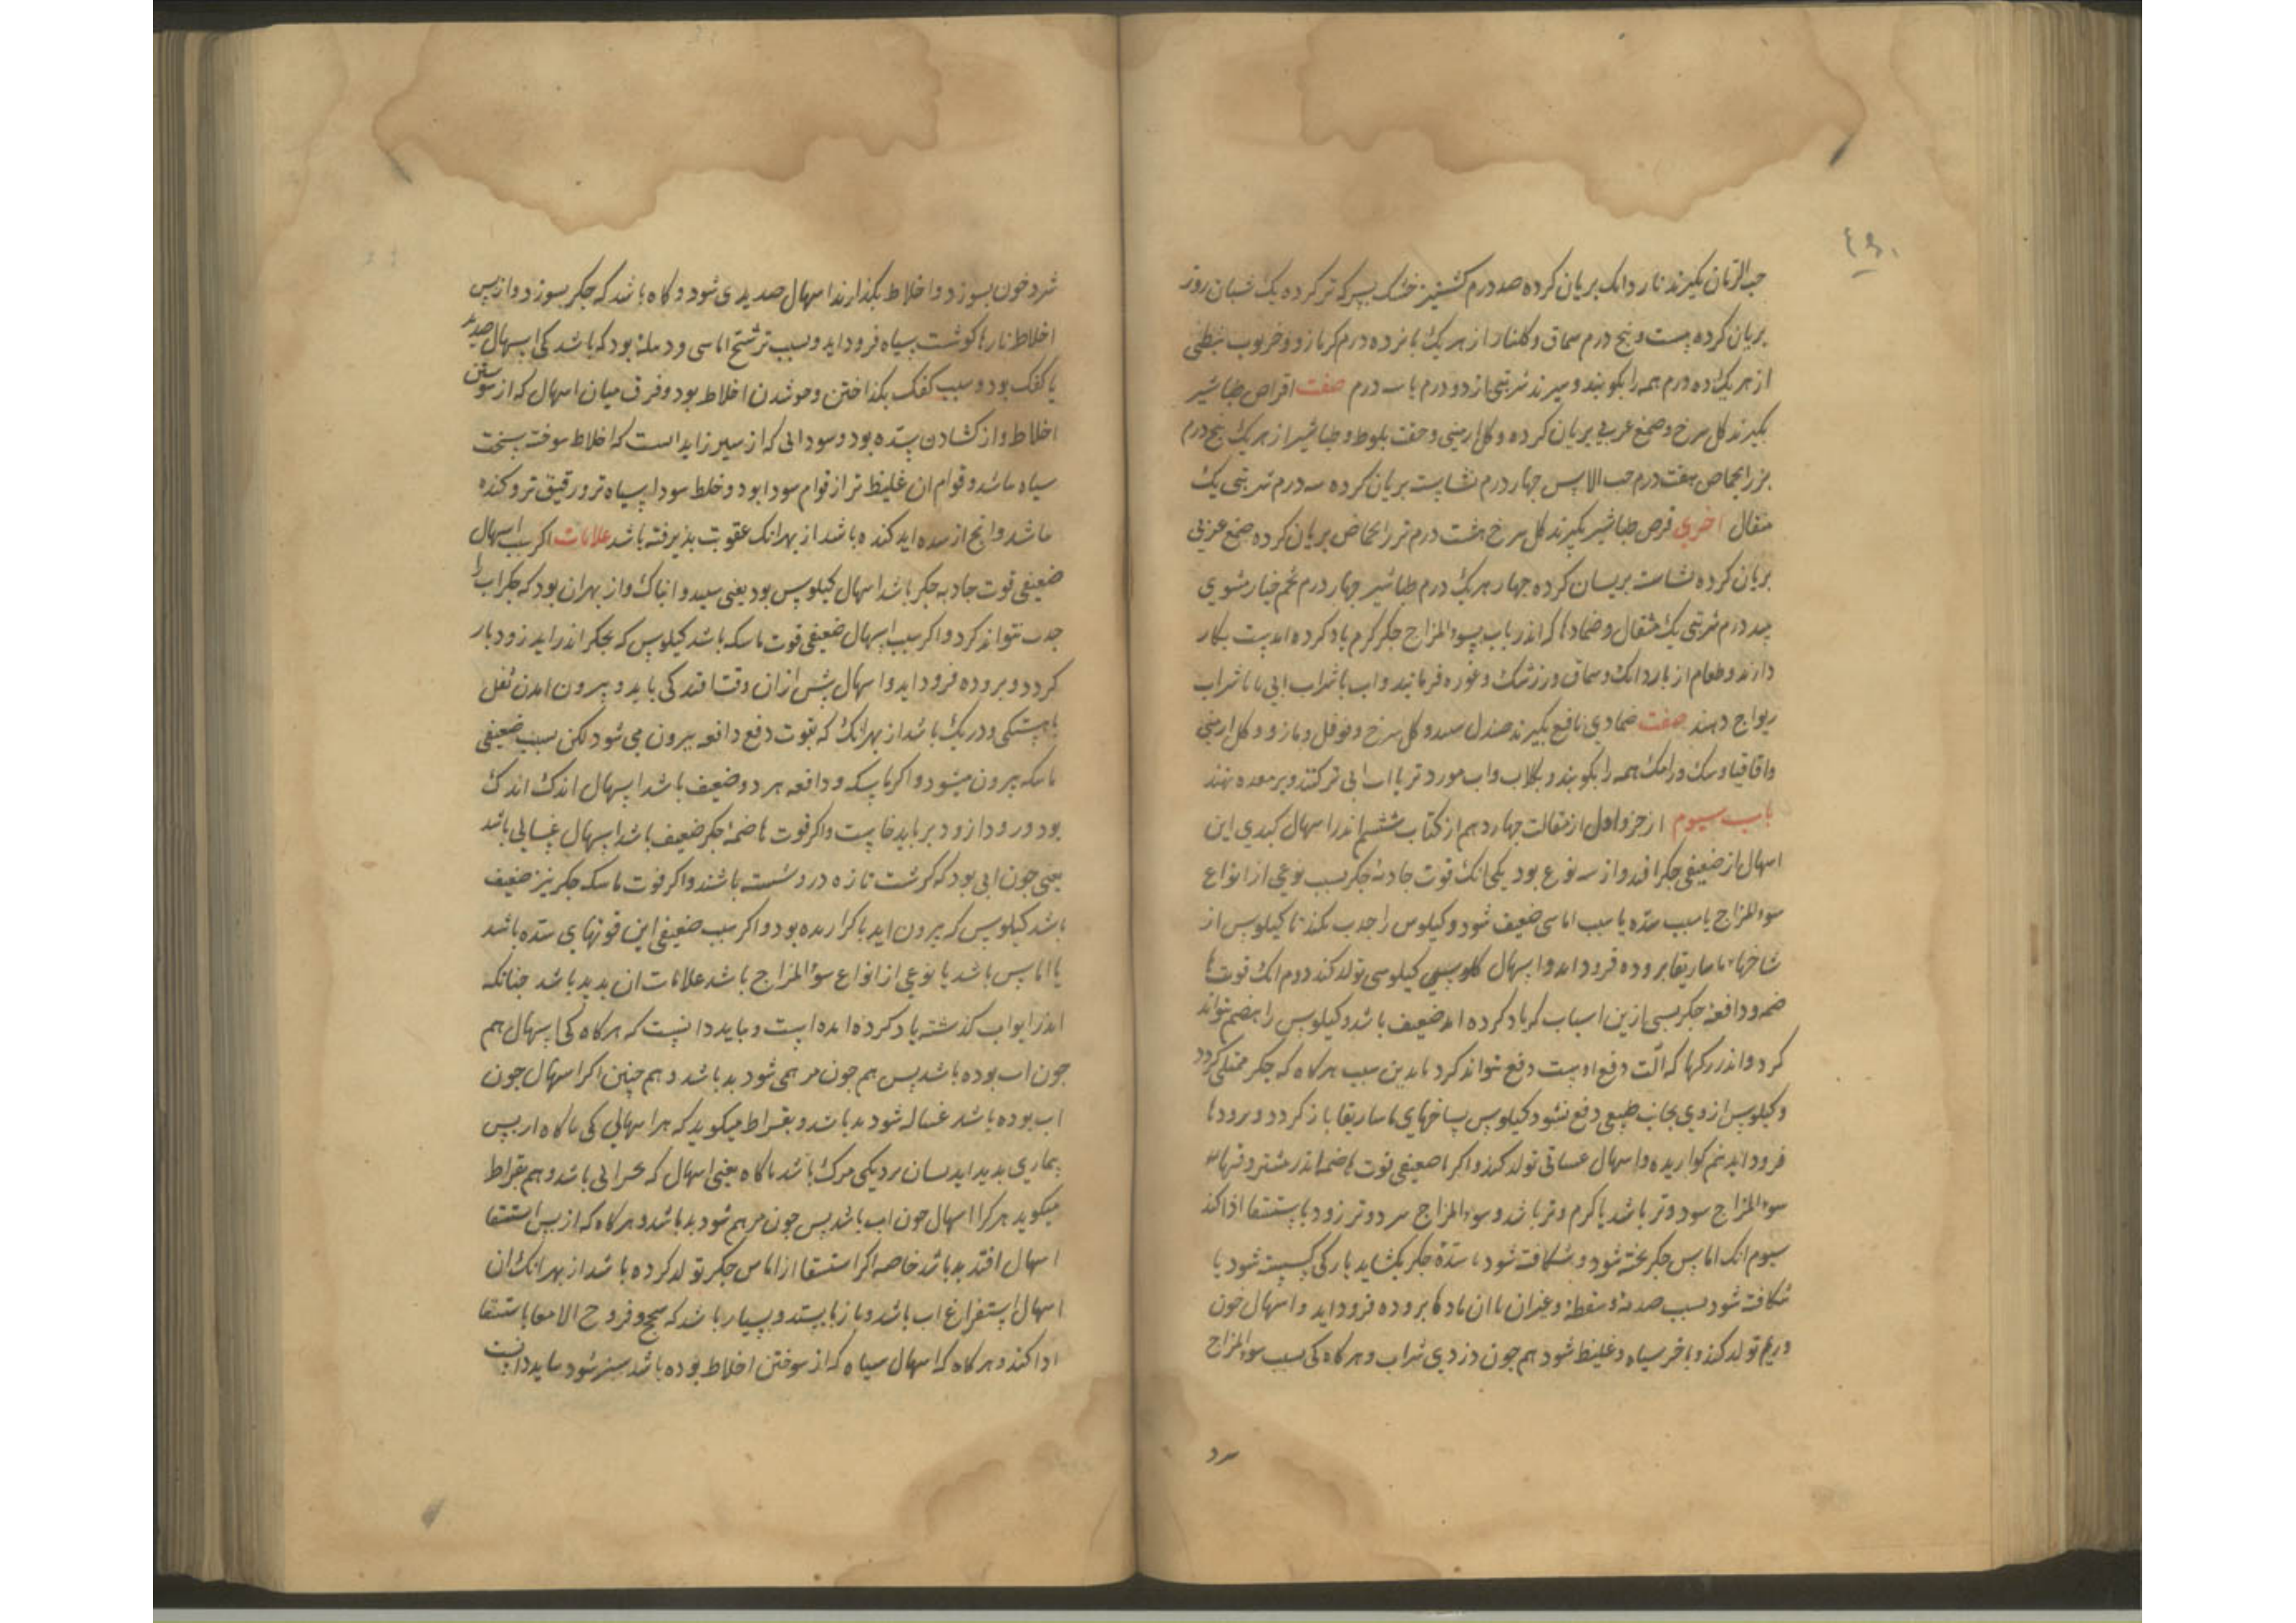 حب الرمان بکیرند نار دانک بریان کرده صد درم کشنیز خشک بسرکه تر کرده یک شبان روز
بریان کرده بیست و پنج درم سماق و کلنار از هر یک پانزده درم کرمازو و خرنوب نبطی
از هر یک ده درم همه را بکوبند و شربتی از دو درم تا سه درم صفت اقراص طباشیر
بکیرند کل سرخ و صمغ عربی بریان کرده و کل ارمنی و جفت بلوط و طباشیر از هر یک پنج درم
بزر الحماض هفت درم حب الاس چهار درم نشاسته بریان کرده سه درم شربتی یک
مثقال اخری قرص طباشیر بکیرند کل سرخ هشت درم بزر الحماض بریان کرده صمغ عربی
بریان کرده نشاسته بریان کرده چهار هر یک درم طباشیر چهار درم تخم خیار
درم شربتی یک مثقال و ضمادها که اندر باب سوء المزاج جکر کرم یاد کرده است بکار
دارند و طعام از ناردانک و سماق و زرشک و غوره فرمایند و اب با شراب ابی یا با شراب
ریواج دهند صفت ضمادی نافع بکیرند صندل سپید و کل سرخ و فوفل و مازو و کل ارمنی
و اقاقیا و سک و رامک همه را بکوبند و بکلاب و اب مورد تر یا اب ابی تر کنند و بر معده نهند
باب سیوم از جزو اول از مقالت چهاردهم از کتاب ششم اندر اسهال کبدی این
اسهال از ضعیفی جکر افتد و از سه نوع بود یکی انک قوت جاذبه جکر بسبب نوعی از انواع
سوء المزاج یا سبب سده یا سبب اماسی ضعیف شود و کیلوس را جذب نکند تا کیلوس از
شاخها ماساریقا بروده فرود اید و اسهال کیلوسی تولد کند دوم انک قوت ها
ضمه و دافعه جکر بسببی ازین اسباب که یاد کرده امد ضعیف باشد و کیلوس را هضم نتواند
کرد و اندر رکها که الت دفع اوست دفع نتواند کرد بدین سبب هر کاه که جکر ممتلی کردد
و کیلوس از وی بجانب طبیعی دفع نشود کیلوس بساخهای ماساریقا باز کردد و برودها
فرود اید نیم کواریده و اسهال غسالی تولد کند و اکر ضعیفی قوت هاضمه اندر مشتر وقتها
سوء المزاج سرد و تر باشد یا کرم و تر باشد و سوء المزاج سرد و تر زود باستسقا ادا کند
سیوم انک اماس جکر پخته شود و شکافته شود یا سده جکر بکشاید یا رکی کسسته شود یا
شکافته شود بسبب صدمه و سقطه و غیر ان با ان مادها بروده فرود اید و اسهال خون
و ریم تولد کند و باخر سیاه و غلیظ شود هم جون دردی شراب و هر کاه کی بسبب سوء المزاج
سرد
شود خون بسوزد و اخلاط بکدازند اسهال صدیدی شود و کاه باشد که جکر بسوزد و از پس
اخلاط پارها کوشت سیاه فرود اید و سبب ترشح اماسی و دمله بود که باشد کی اسهال صدید
با کفک بود و سبب کفک بکداختن و جوشدن اخلاط بود و فرق میان اسهال که از سوختن
اخلاط و از کشادن سده بود و سودایی که از سپرز اید است که اخلاط سوخته سخت
سیاه باشد و قوام ان غلیظ تر از قوام سودا بود و خلط سودا سیاه تر و رقیق تر و کنده
باشد و انج از سده اید کنده باشد از بهر انک عفونت پذیرفته باشد علامات اکر سبب اسهال
ضعیفی قوت جاذبه جکر باشد اسهال کیلوس بود یعنی سپید و ابناک و از بهر ان بود که جکر اب را
جذب نتواند کرد و اکر سبب اسهال ضعیفی قوت ماسکه باشد کیلوس که بجکر اندر اید زود باز
کردد و بروده فرود اید و اسهال پیش از ان وقت افتد کی باید و بیرون امدن ثفل
باهستکی و درنک باشد از بهر انک که بقوت دفع دافعه بیرون می شود لکن سبب ضعیفی
ماسکه بیرون میشود و اکر ماسکه و دافعه هر دو ضعیف باشد اسهال اندک اندک
بود و زود از زود بر باید خاست و اکر قوت هاضمه جکر ضعیف باشد اسهال غسالی باشد
یعنی جون ابی بود که کوشت تازه در و شسته باشند و اکر قوت ماسکه جکر نیز ضعیف
باشد کیلوس که بیرون اید نا کواریده بود و اکر سبب ضعیفی این قوتهای سده باشد
یا اماس باشد یا نوعی از انواع سوء المزاج باشد علامات ان پدید باشد جنانکه
اندر ابواب کذشته یاد کرده امده است و بباید دانست که هر کاه کی اسهال هم
جون اب بوده باشد پس هم جون مرهمی شود بد باشد و هم چنین اکر اسهال جون
اب بوده باشد غساله شود بد باشد و بقراط میکوید که هر اسهالی کی ناکاه از پس
بیماری پدید اید نشان نزدیکی مرک باشد ناکاه یعنی اسهال که بحرانی باشد و هم بقراط
میکوید هر کرا اسهال جون اب باشد پس جون مرهم شود بد باشد و هر کاه که از پس استسقا
اسهال افتد بد باشد خاصه اکر استسقا از اماس جکر تولد کرده باشد از بهر انک ان
اسهال استفراغ اب باشد و باز نایستد و بسیار باشد که سحج و قروح الامعا باستسقا
ادا کند و هر کاه که اسهال سیاه که از سوختن اخلاط بوده باشد سبز شود بباید دانست